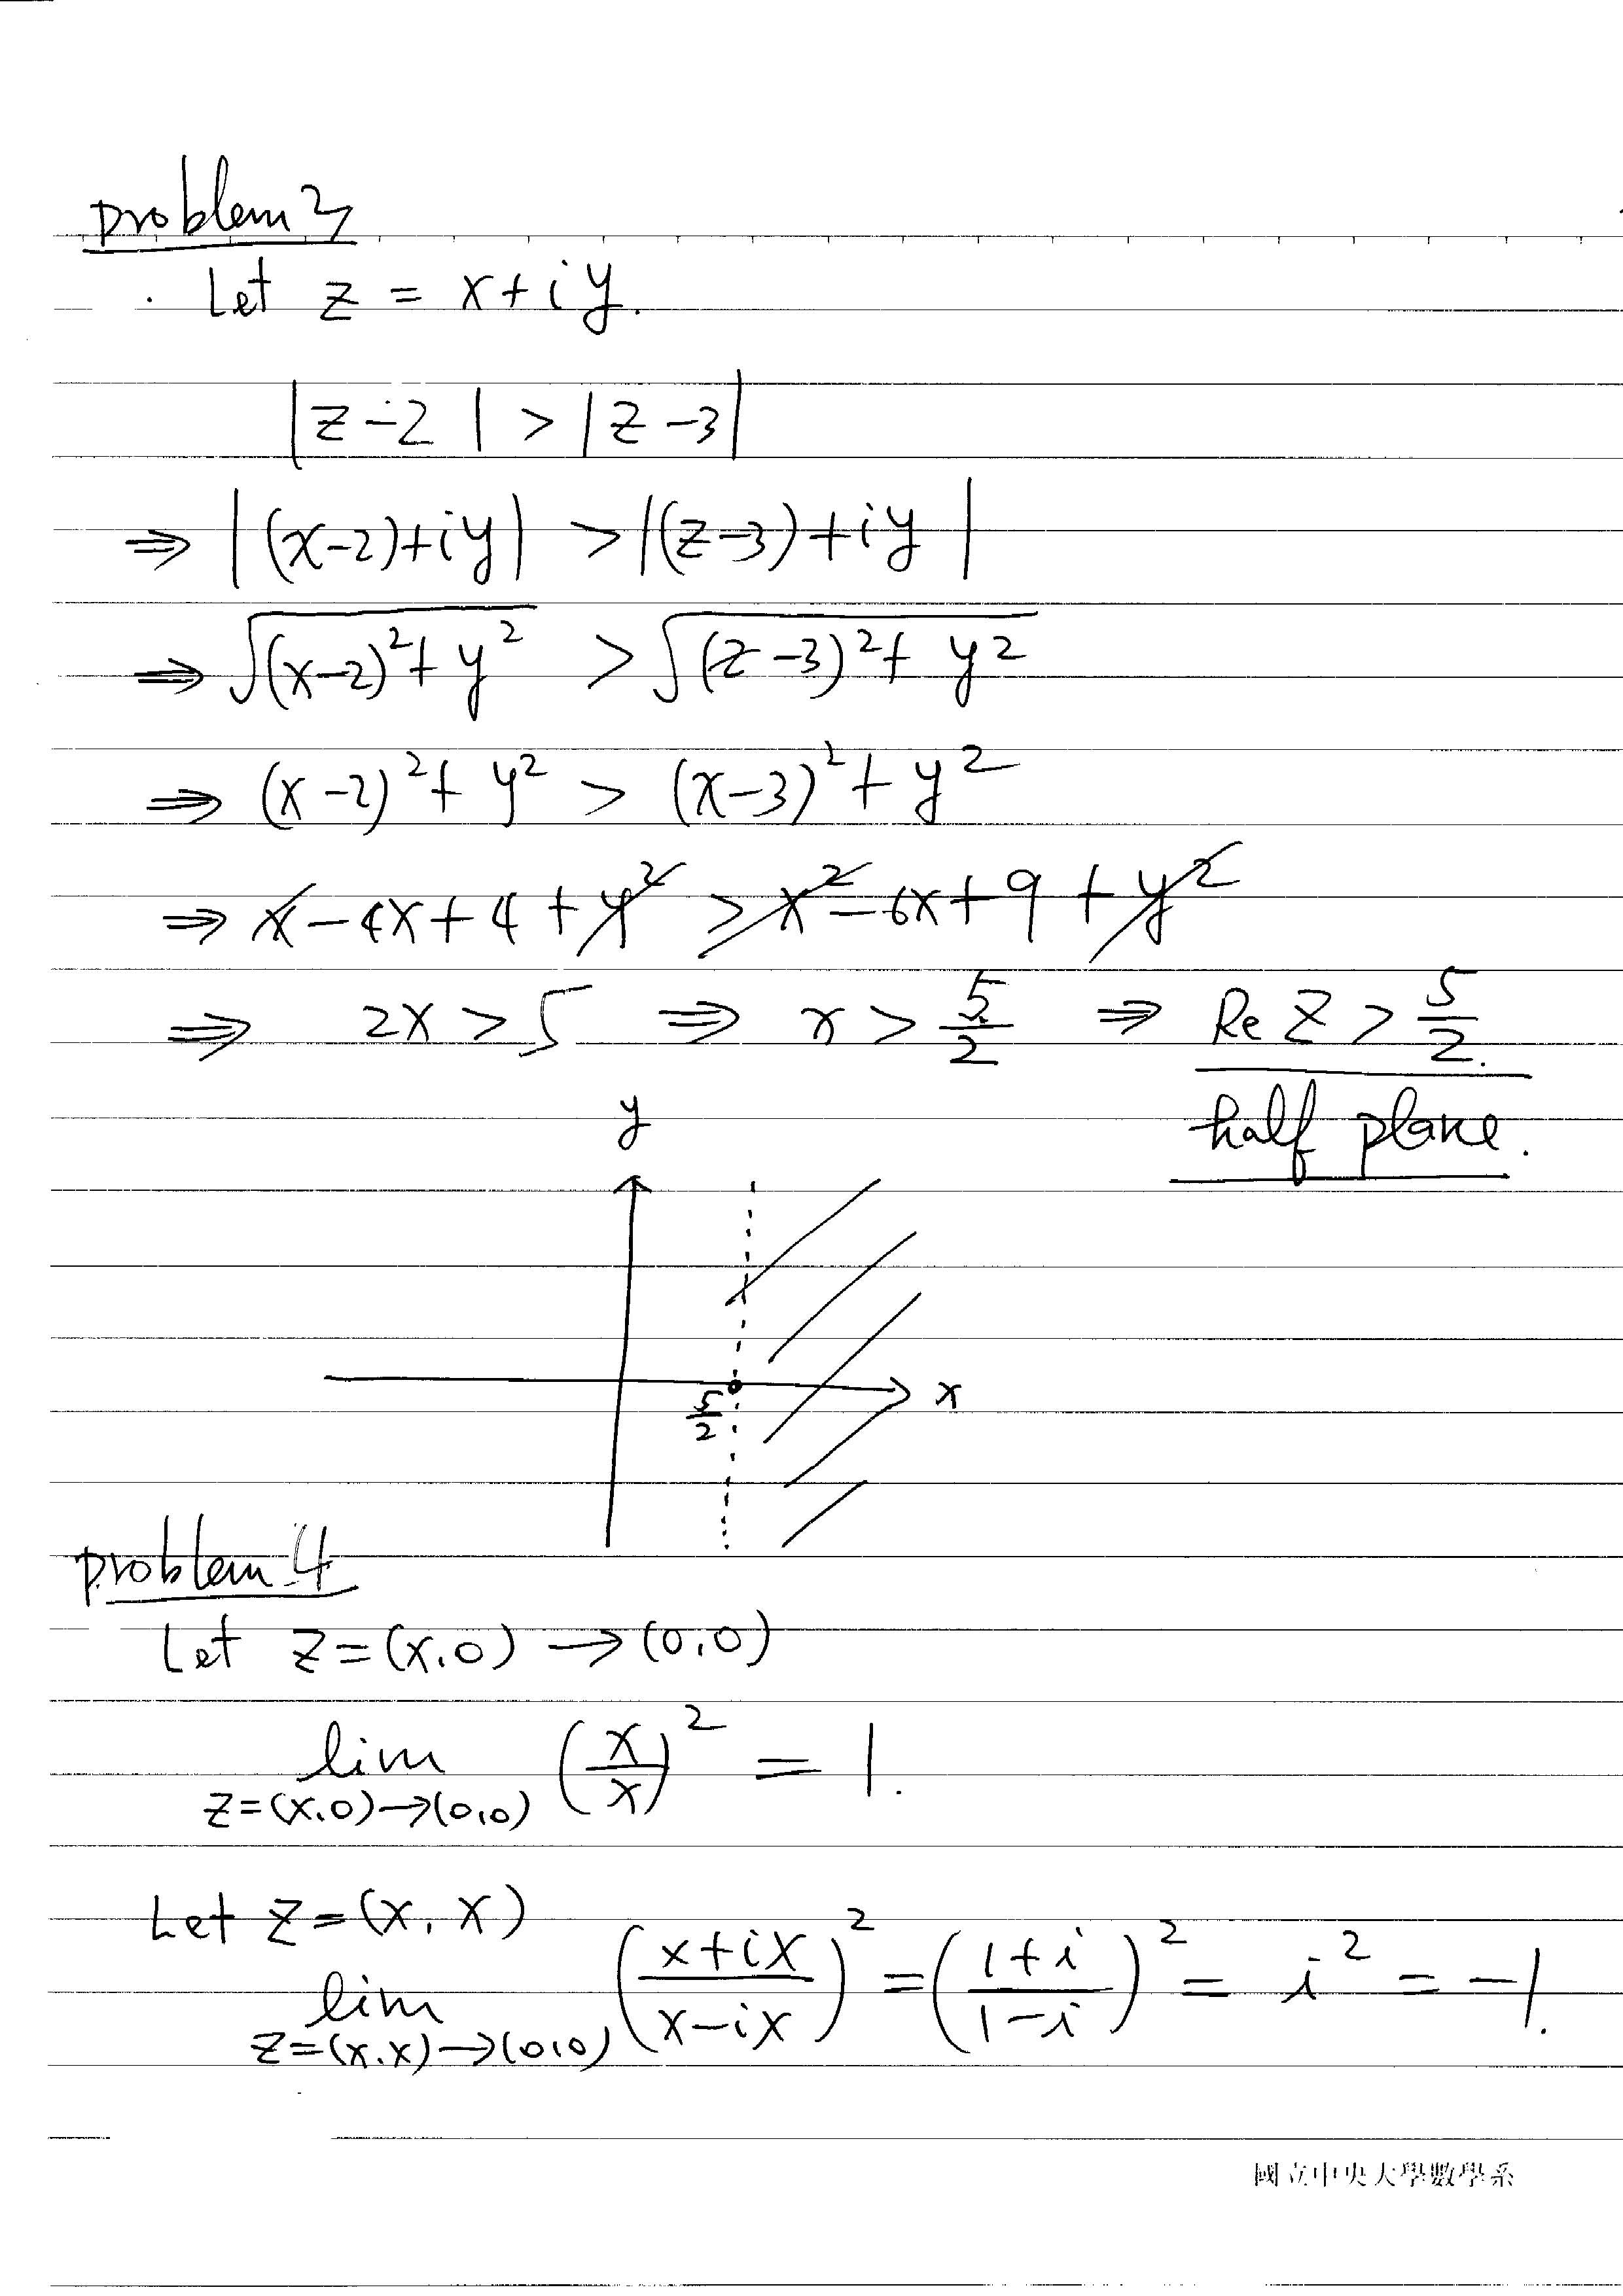 problem 2
Let z = x+iy.
|z-2| > |z-3|
⇒ |(x-2)+iy| > |(z-3)+iy|
⇒ √((x-2)²+y²) > √((z-3)²+y²)
⇒ (x-2)²+y² > (x-3)²+y²
⇒ x-4x+4+y² > x²-6x+9+y²
⇒ 2x > 5 ⇒ x > 5/2 ⇒ Re z > 5/2.
half plane.
y
x
5/2
problem 4
Let z=(x,0) → (0,0)
lim_{z=(x,0)→(0,0)} (x/x)² = 1.
Let z=(x,x)
lim_{z=(x,x)→(0,0)} ((x+ix)/(x-ix))² = ((1+i)/(1-i))² = i² = -1.
國立中央大學數學系